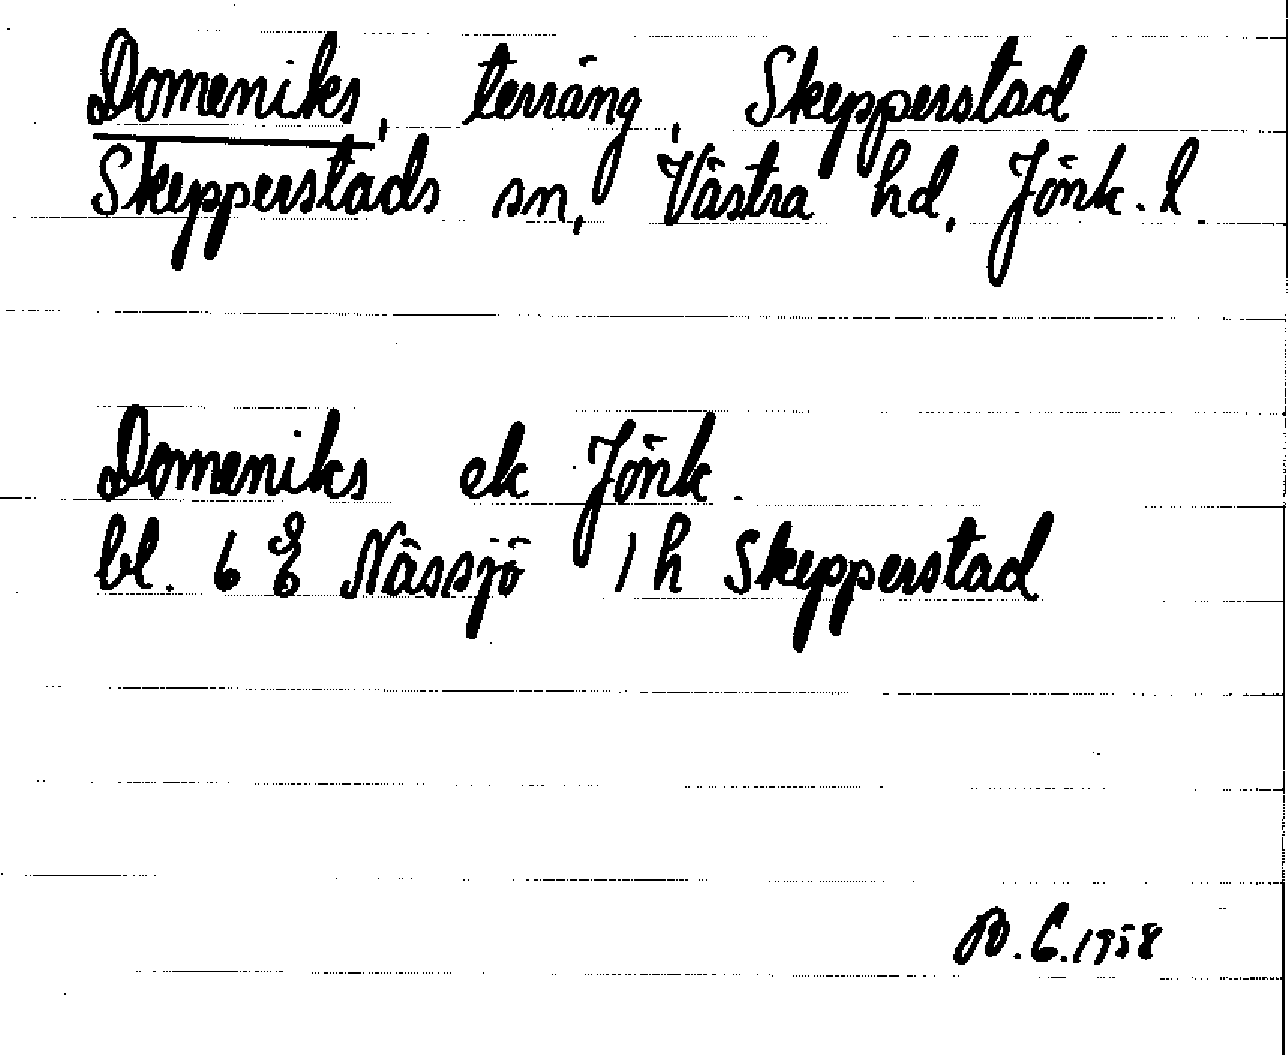 Domeniks, terräng, Skepperstad
Skepperstads sn, Västra hd, Jönk. l.
Domeniks ek Jönk.
bl. 6 E Nässjö 1 h Skepperstad
1958